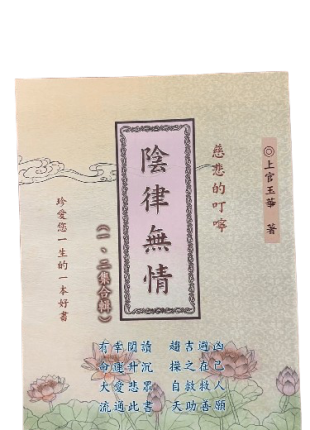 ◎上官玉華 著
慈悲的叮嚀
陰律無情
(一、二集合輯)
珍愛您一生的一本好書
有幸閱讀 趨吉避凶
命運升沉 操之在己
大愛悲眾 自救救人
流通此書 天助善願